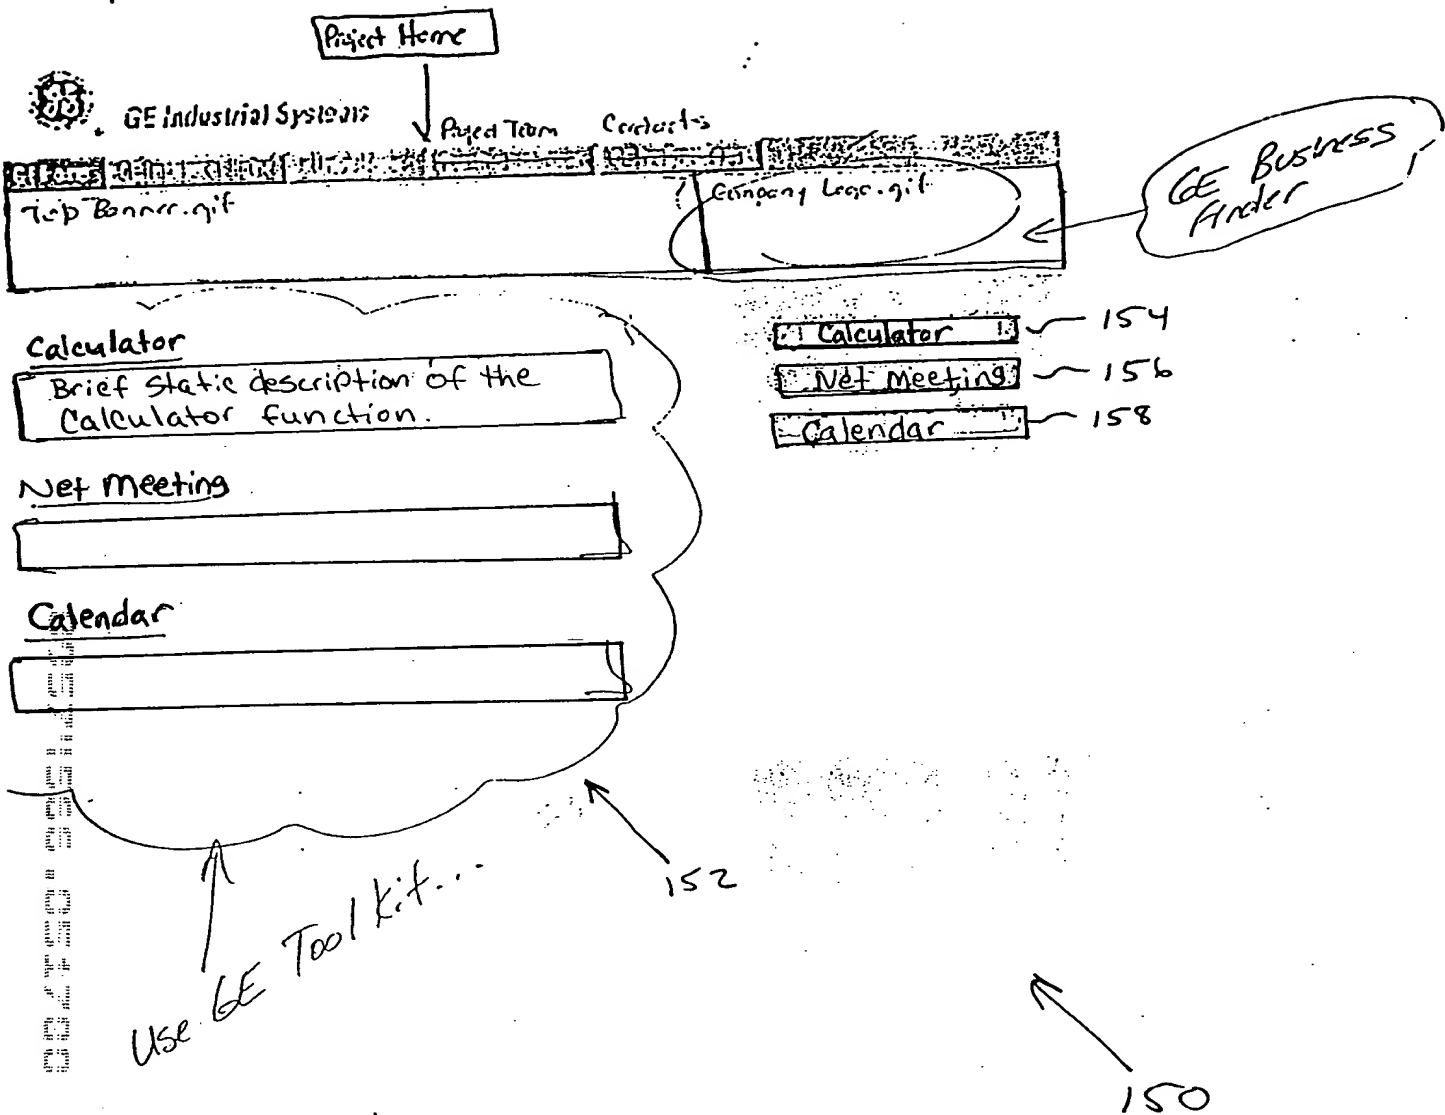 Project Home
GE Industrial Systems
Project Team
Contacts
Top Banner.gif
Company Logo.gif
GE Business
finder
Calculator
Brief static description of the
Calculator function.
Net Meeting
Calendar
Calculator
154
Net Meeting
156
Calendar
158
152
Use GE Tool kit...
150